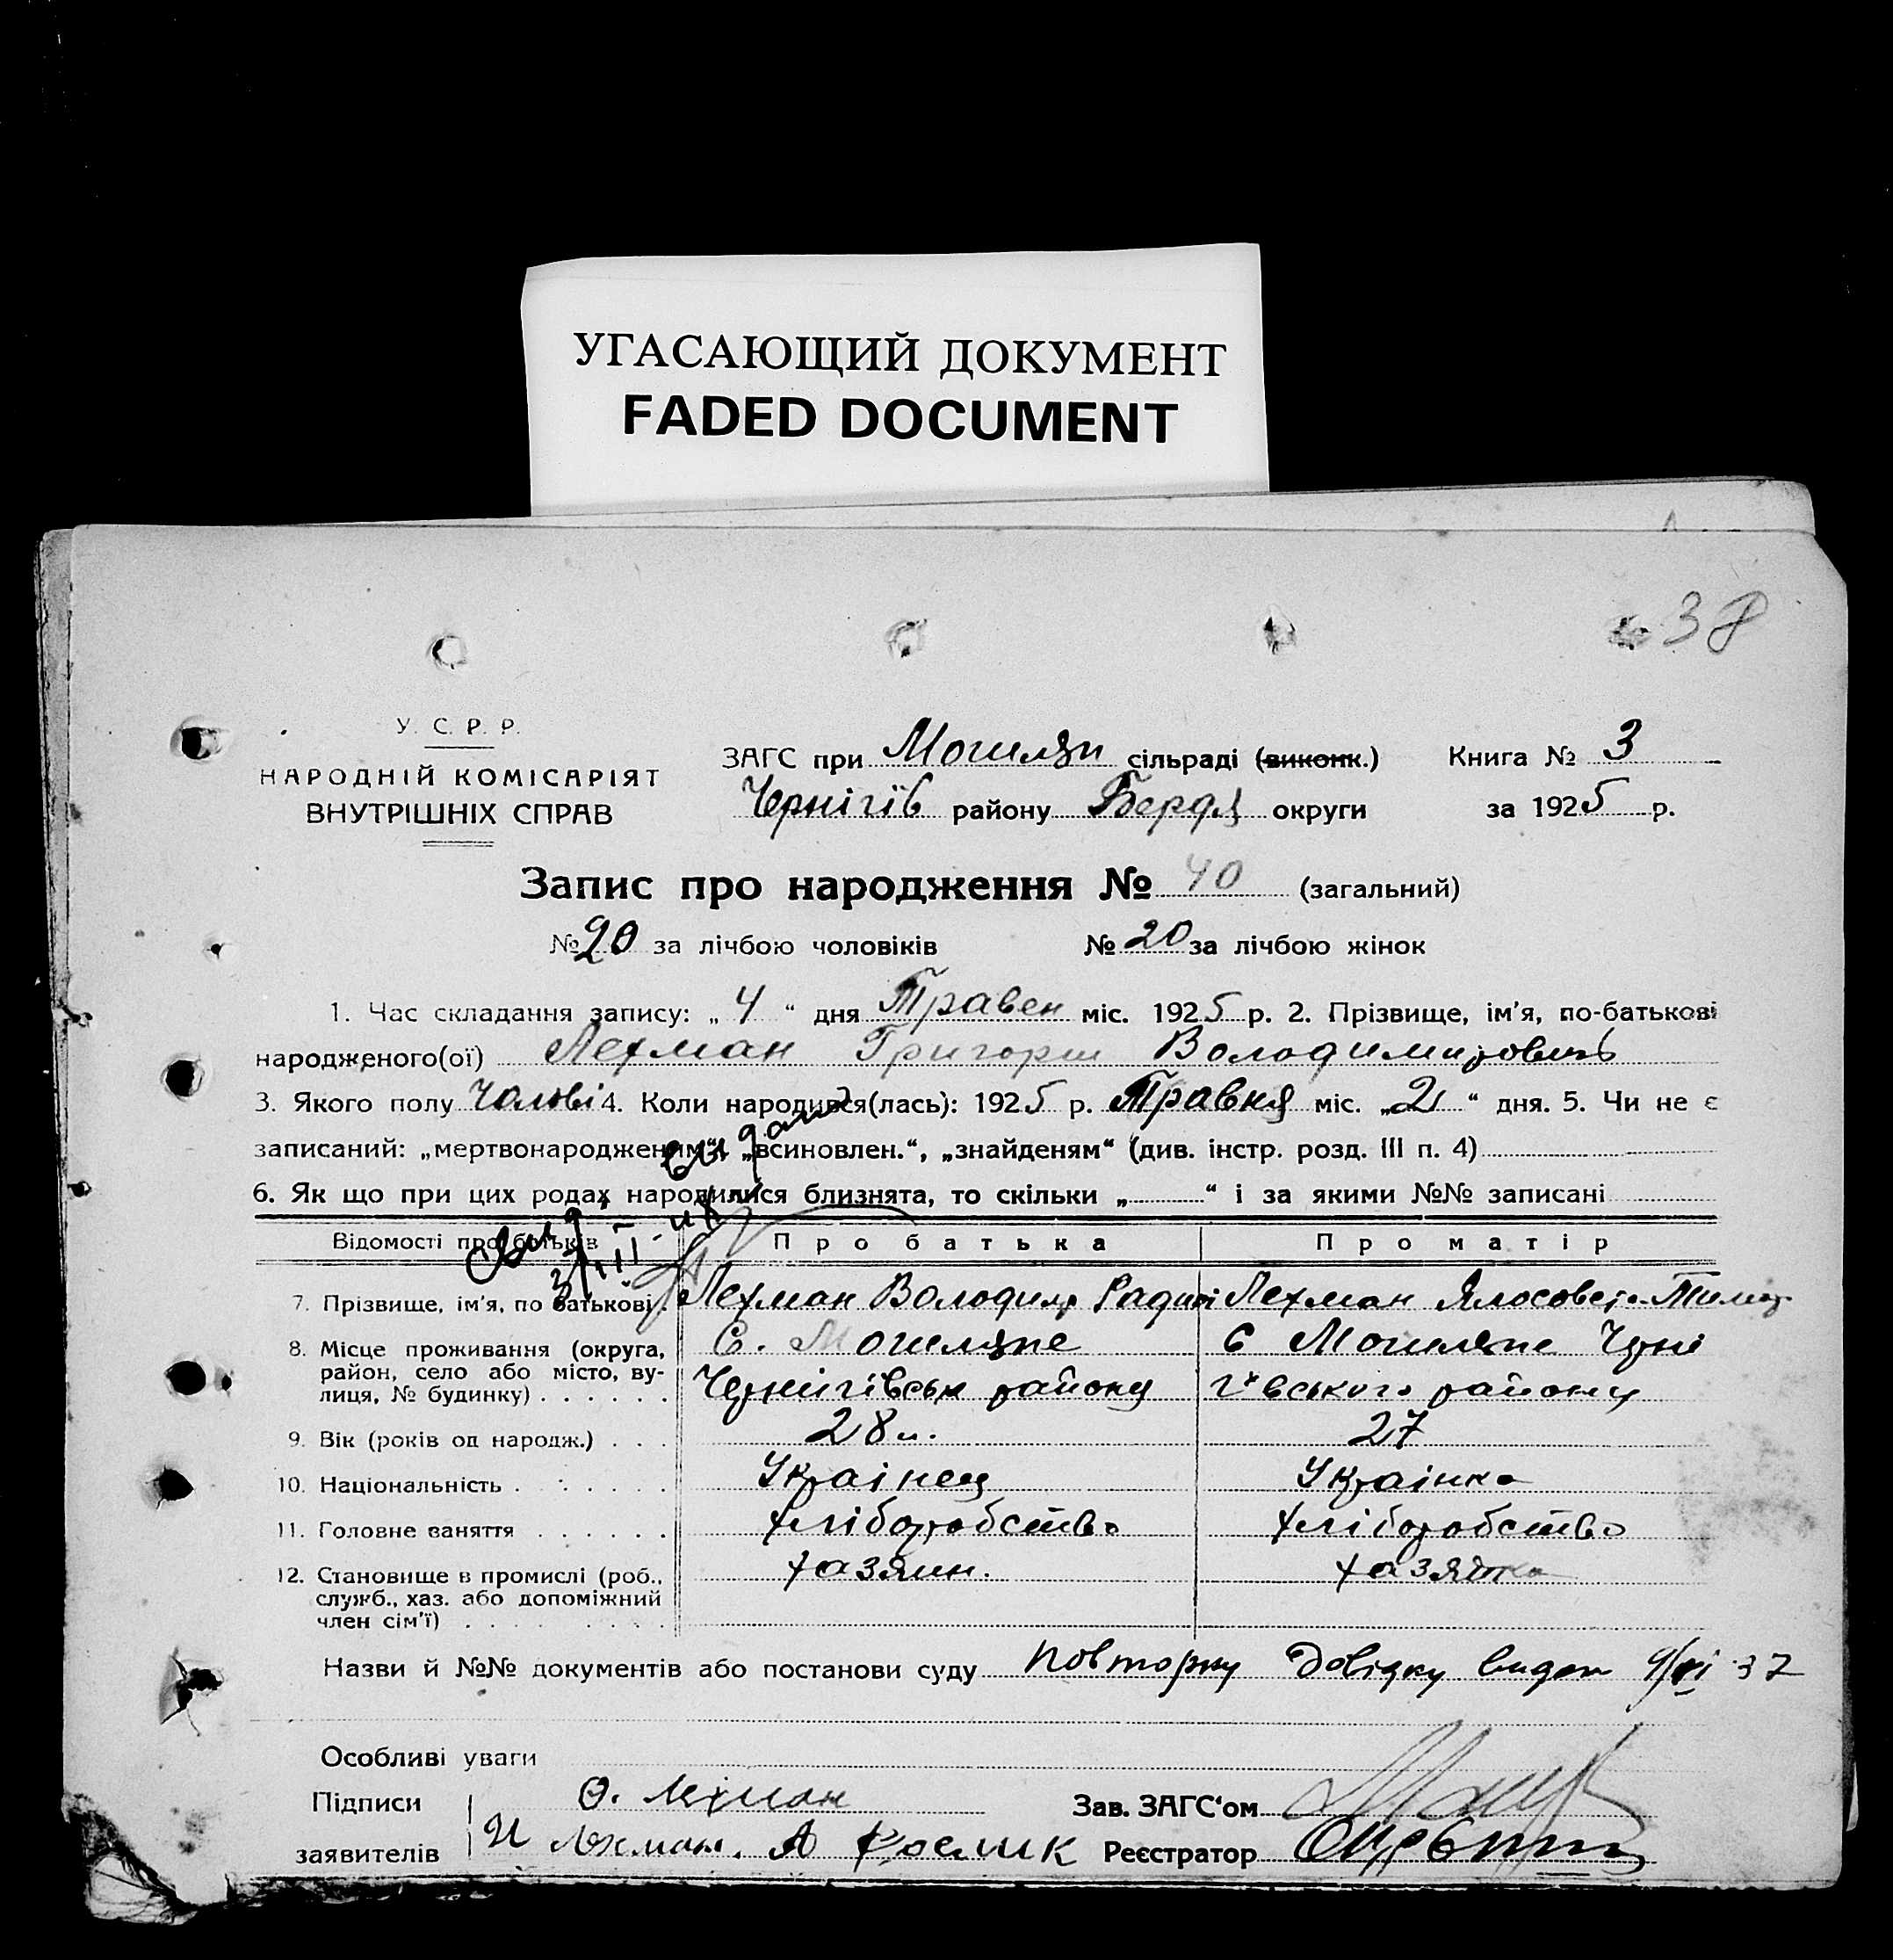 УГАСАЮЩИЙ ДОКУМЕНТ
FADED DOCUMENT
38
У. С. Р. Р.
НАРОДНІЙ КОМІСАРІЯТ
ВНУТРІШНІХ СПРАВ
ЗАГС при Могиляни сільраді (виконк.) Книга № 3
Чернігів району Бердя округи за 1925 р.
Запис про народження № 40 (загальний)
№ 20 за лічбою чоловіків № 20 за лічбою жінок
1. Час складання запису: „ 4 “ дня Травен міс. 1925 р. 2. Прізвище, ім'я, по-батькові
народженого(ої) Лехман Григорш Володимирович
3. Якого полу Чолові 4. Коли народився(лась): 1925 р. Травня міс. „2“ дня. 5. Чи не є
записаний: „мертвонародженим“, „всиновлен.“, „знайденям“ (див. інстр. розд. III п. 4)
6. Як що при цих родах народилися близнята, то скільки „ “ і за якими №№ записані
Відомості про батьків Про батька Про матір
7. Прізвище, ім'я, по батькові. Лехман Володимр Лехман
8. Місце проживання (округа, район, село або місто, ву-лиця, № будинку) С. Могиляне Чернігівськ району С Могиляне Черні гівського району
9. Вік (років од народж.) 28 л. 27
10. Національність Украінец Украінка
11. Головне заняття хліборобство хліборобство
12. Становище в промислі (роб., служб., хаз. або допоміжний член сім'ї) хазяин. хазяйка
Назви й №№ документів або постанови суду Повторну довідку видан 9/VI 37
Особливі уваги
Підписи О. Лехман Зав. ЗАГС'ом
заявителів И Лехман. А Реєстратор